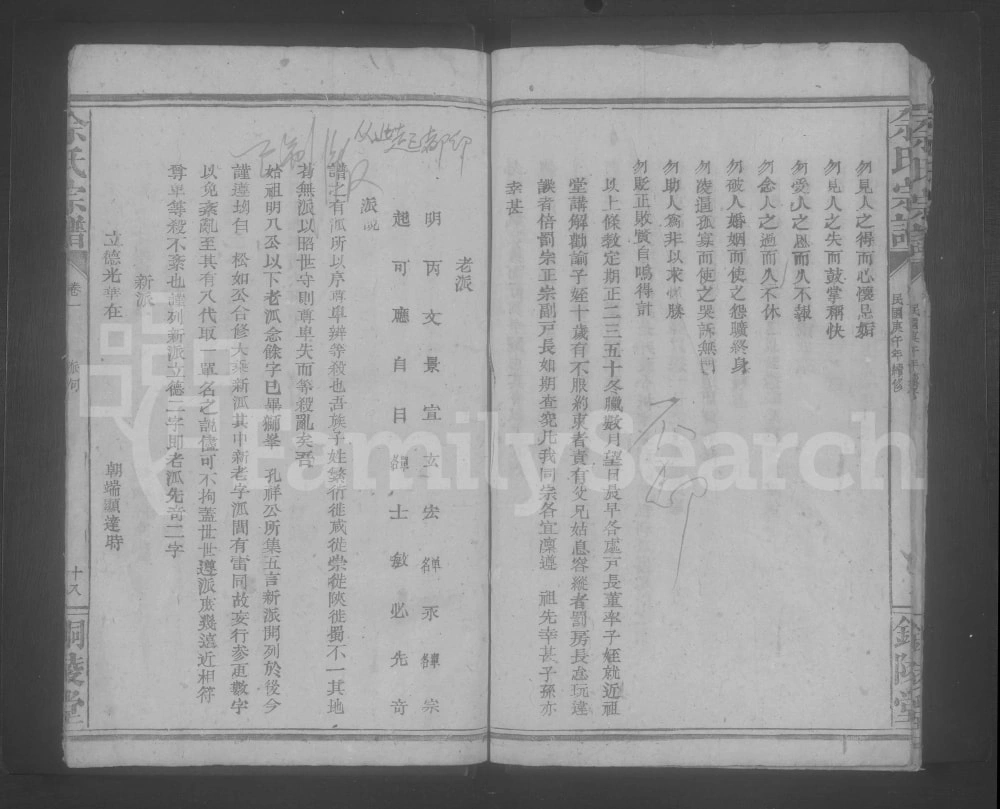 余氏宗譜
民國庚午年續修
勿見人之得而心懷忌媢
勿見人之失而鼓掌稱快
勿受人之恩而久不報
勿念人之過而久不休
勿破人婚姻而使之怨曠終身
勿凌逼孤寡而使之哭訴無門
勿助人為非以求必勝
勿貶正敗賢自鳴得計
以上條教定期正二三五十冬臘數月望日最早各處戶長董率子姪就近祖
堂講解勸諭子姪十歲有不服約束者責有父兄姑息容縱者罰房長怠玩違
誤者倍罰宗正宗副戶長如期查究凡我同宗各宜凜遵 祖先幸甚子孫亦
幸甚
不印
老派
明 丙 文 景 宣 玄 宏 單名 永 單名 宗
起 可 應 自 目 單名 士 敏 必 先 奇
从此起都印
派說
譜之有派所以序尊卑辨等殺也吾族子姓繁衍徙咸徙崇徙陝徙蜀不一其地
若無派以昭世守則尊卑失而等殺亂矣吾
始祖明八公以下老派念餘字已畢 孔祥公所集五言新派開列於後今
謹遵均自 松如公合修大乘新派其中新老字派間有雷同故妄行參更數字
以免紊亂至其有八代取一單名之說儘可不拘蓋世世遵派庶幾遠近相符
尊卑等殺不紊也 列新派立德二字即老派先奇二字
新派
立德光華在 朝端顯達時
余氏宗譜 卷一 十八
FamilySearch